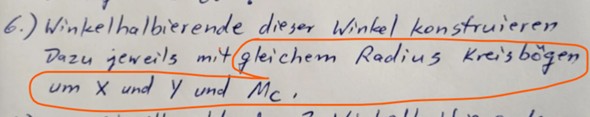 6.) Winkelhalbierende dieser Winkel konstruieren
Dazu jeweils mit gleichem Radius Kreisbögen
um X und Y und Mc.